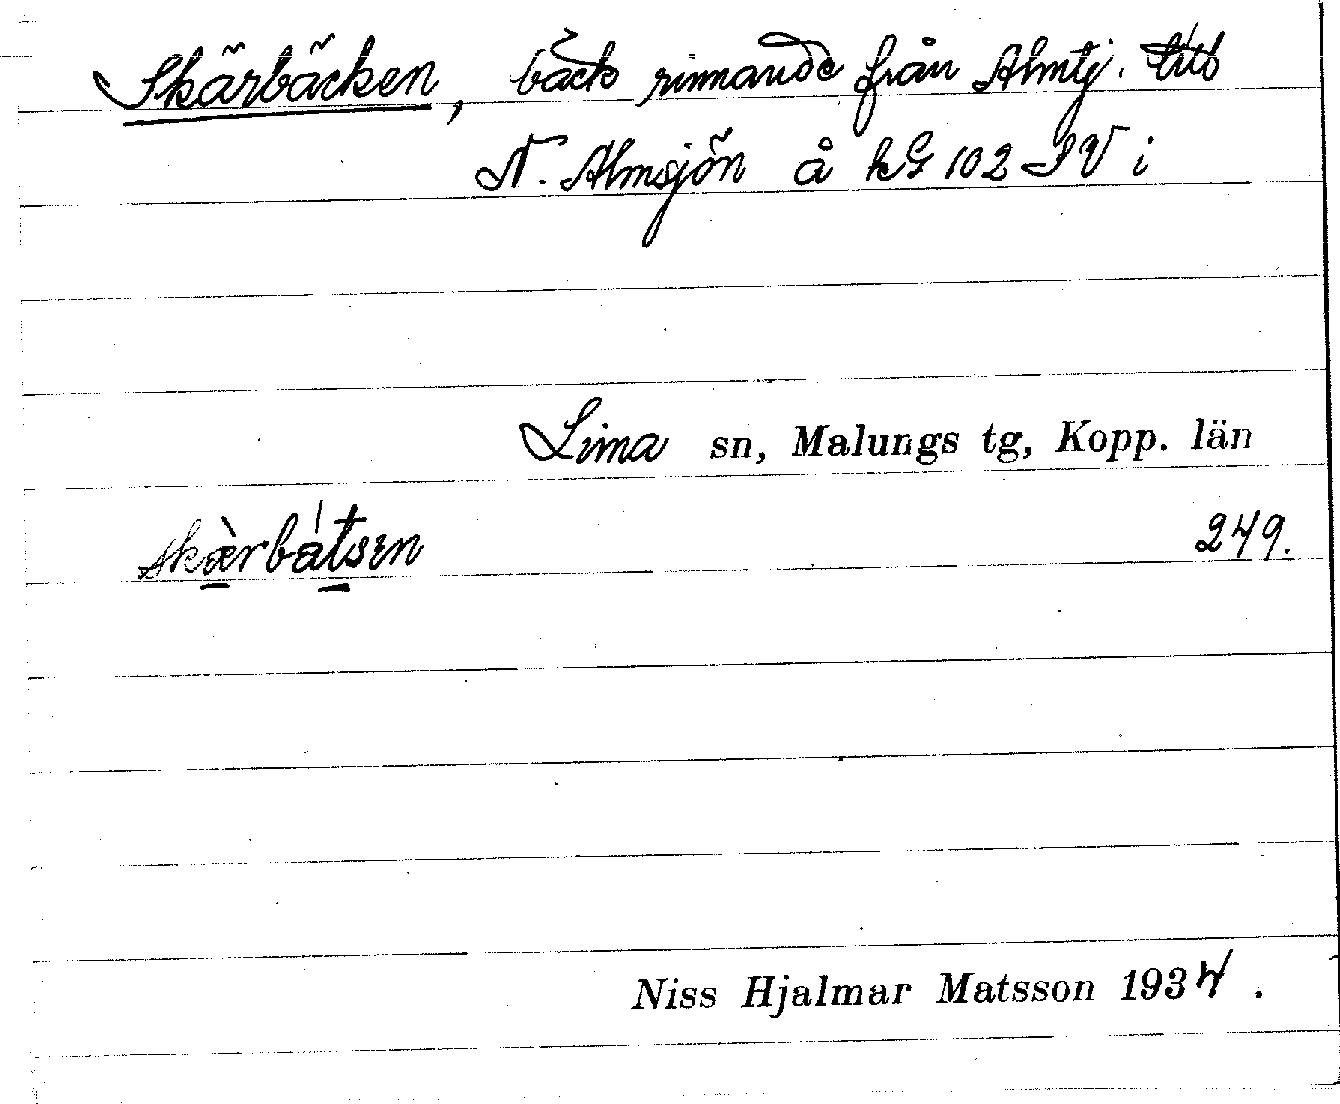 Skärbäcken, bäck rinnande från Almtj. till
N. Almsjön å kG 102 SV i
Lima sn, Malungs tg, Kopp. län
skæ̀rbátsɛn 249.
Niss Hjalmar Matsson 1934.